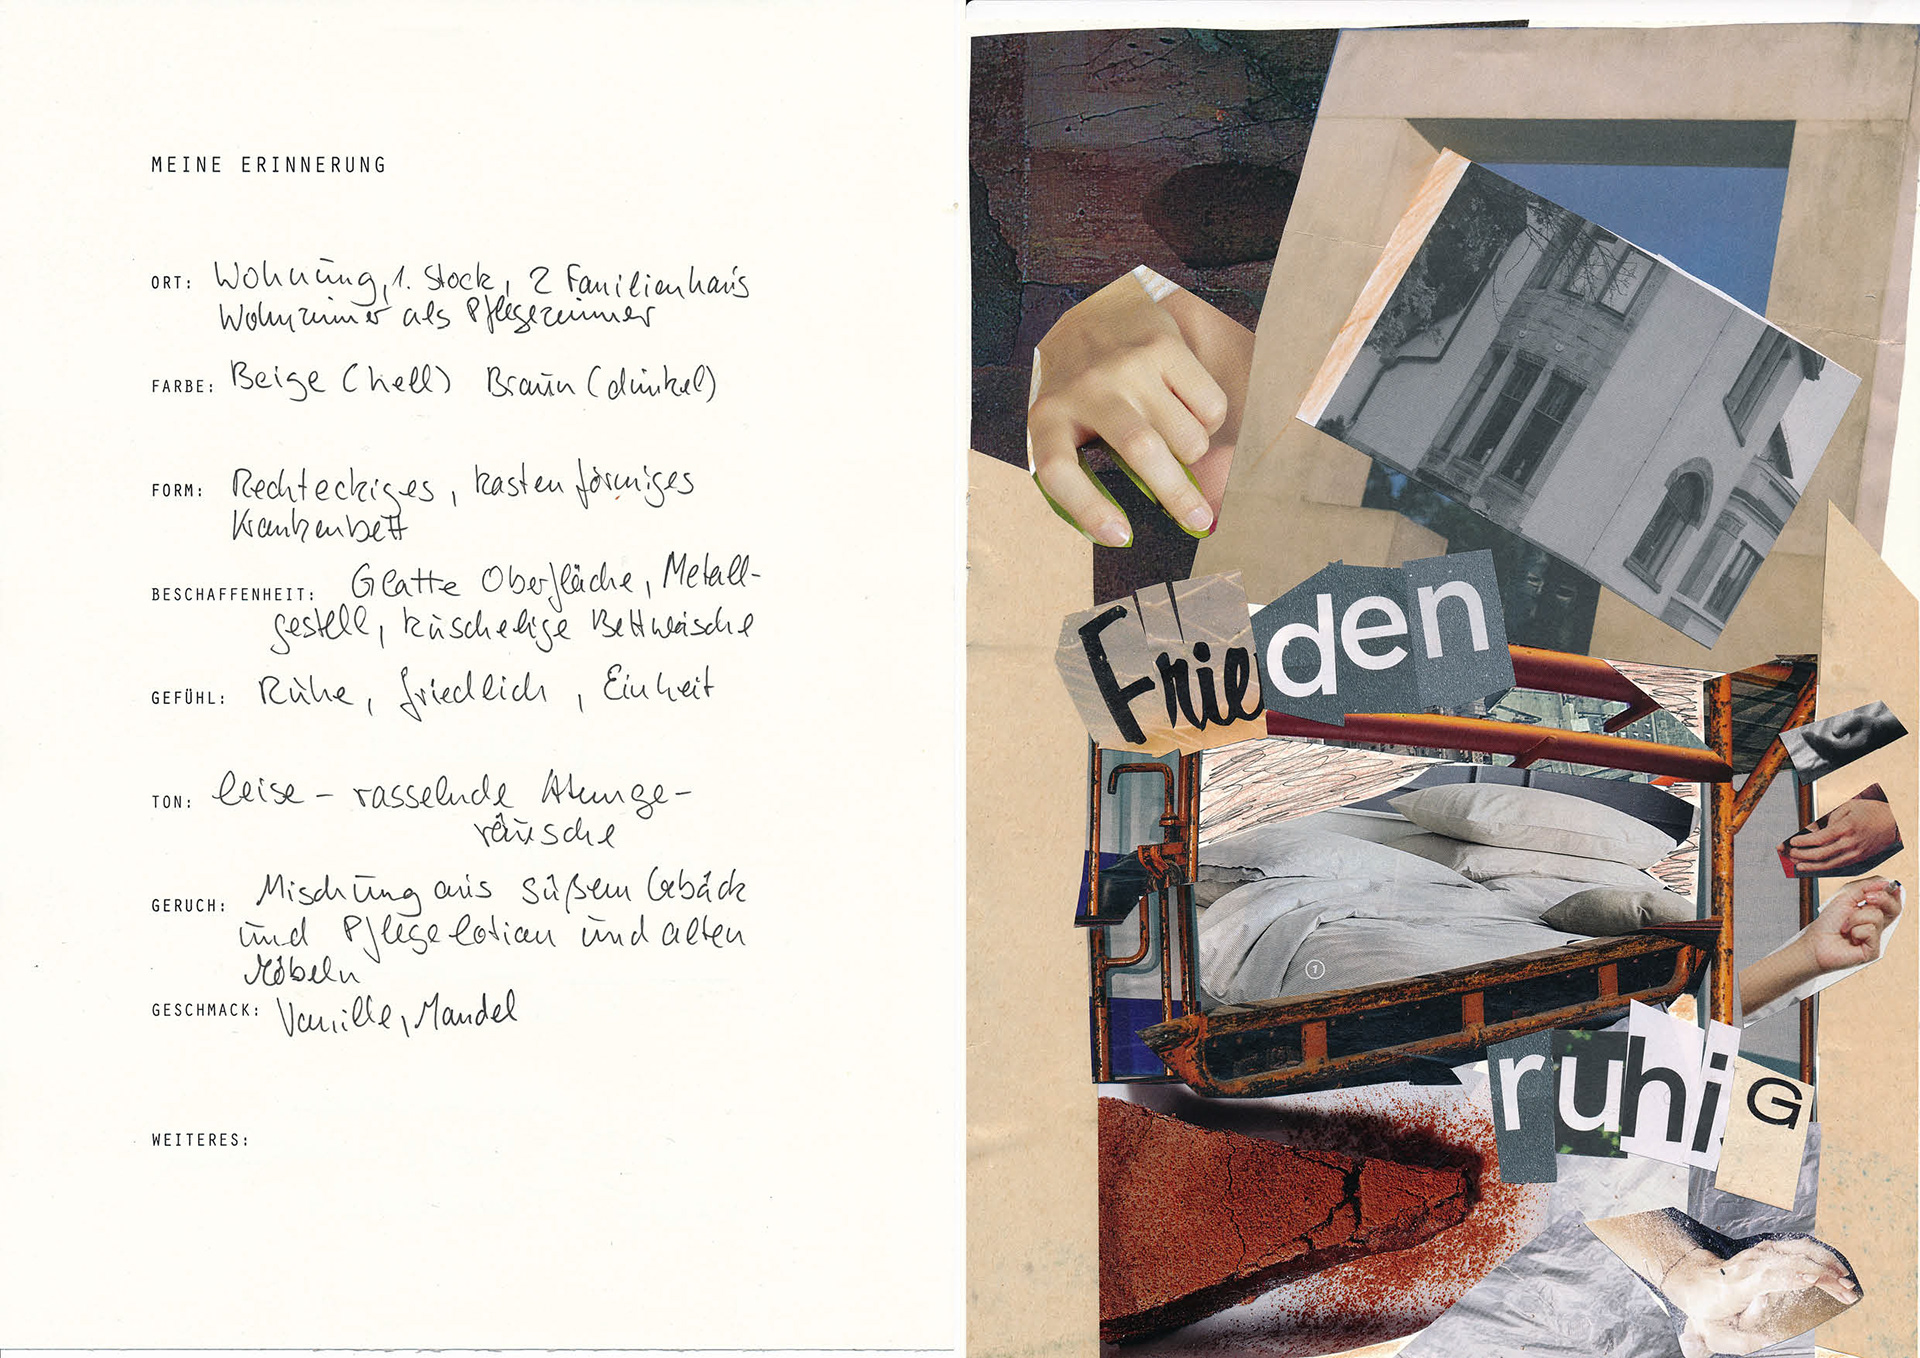 MEINE ERINNERUNG
ORT: Wohnung, 1. Stock, 2 Familienhaus
Wohnzimmer als Pflegezimmer
FARBE: Beige (hell) Braun (dunkel)
FORM: Rechteckiges, kastenförmiges
Krankenbett
BESCHAFFENHEIT: Glatte Oberfläche, Metall-
gestell, kuschelige Bettwäsche
GEFÜHL: Ruhe, friedlich, Einheit
TON: leise - rasselnde Atemge-
räusche
GERUCH: Mischung aus süßem Gebäck
und Pflegelotion und alten
Möbeln
GESCHMACK: Vanille, Mandel
WEITERES:
Frieden
1
ruhiG